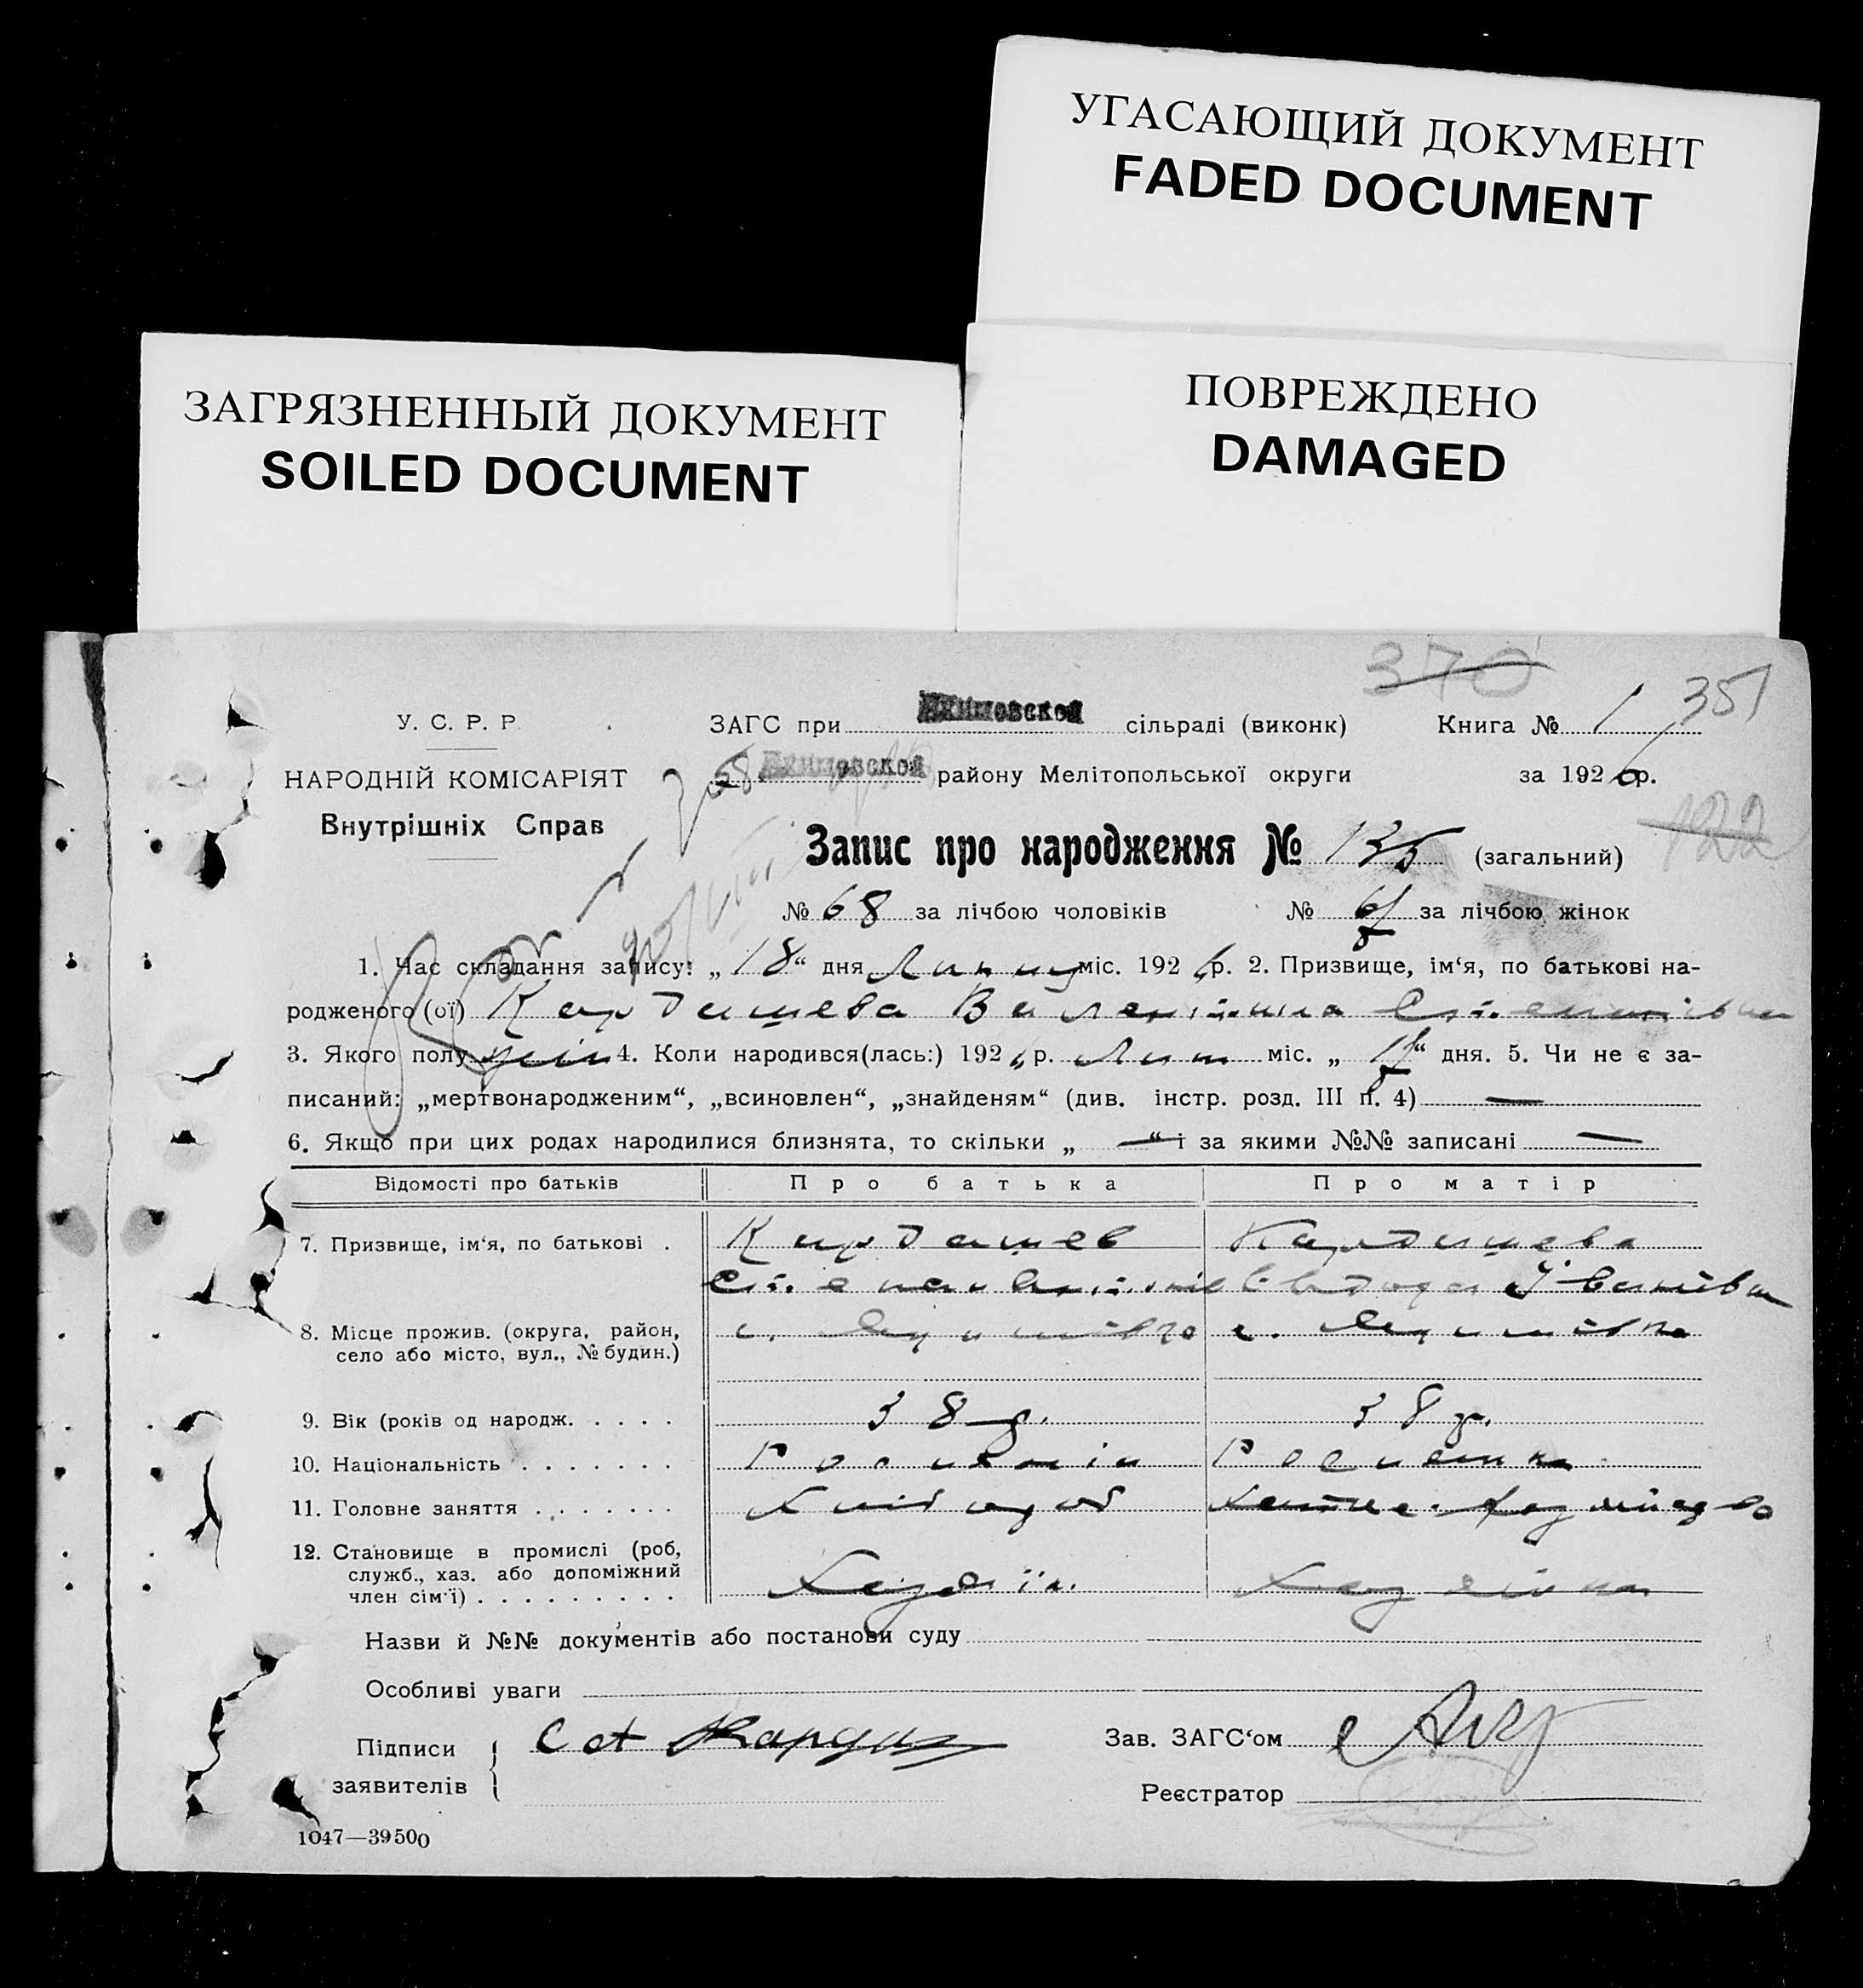 УГАСАЮЩИЙ ДОКУМЕНТ
FADED DOCUMENT
ЗАГРЯЗНЕННЫЙ ДОКУМЕНТ
SOILED DOCUMENT
ПОВРЕЖДЕНО
DAMAGED
370
351
У. С. Р. Р.
ЗАГС при Якимовской сільраді (виконк) Книга № 1
НАРОДНІЙ КОМІСАРІЯТ
268 Якимовской району Мелітопольської округи за 1926 р.
Внутрішніх Справ
122
Запис про народження № 135 (загальний)
№ 68 за лічбою чоловіків № 67 за лічбою жінок
1. Час складання запису: „18“ дня Липня міс. 1926 р. 2. Призвище, ім‘я, по батькові на-
родженого (ої) Кардашева Валентина Степанівна
3. Якого полу жін 4. Коли народився(лась:) 1926 р. Лип міс. „17“ дня. 5. Чи не є за-
писаний: „мертвонародженим“, „всиновлен“, „знайденям“ (див. інстр. розд. III п. 4) —
6. Якщо при цих родах народилися близнята, то скільки „—“ і за якими №№ записані —
Відомості про батьків Про батька Про матір
7. Призвище, ім‘я, по батькові . Кардашев Кардашева
Степан Євдокія Іванівна
8. Місце прожив. (округа, район, с. Якимівка с. Якимівка
село або місто, вул., № будин.)
9. Вік (років од народж. . . . . 38 р. 38 р.
10. Національність . . . . . . . Росіянин Росіянка
11. Головне заняття . . . . . . . Хлібороб
12. Становище в промислі (роб,
служб., хаз. або допоміжний Хазяїн Хазяйка
член сім‘ї) . . . . . . . . .
Назви й №№ документів або постанови суду
Особливі уваги
Підписи Зав. ЗАГС‘ом
заявителів Реєстратор
1047—39500